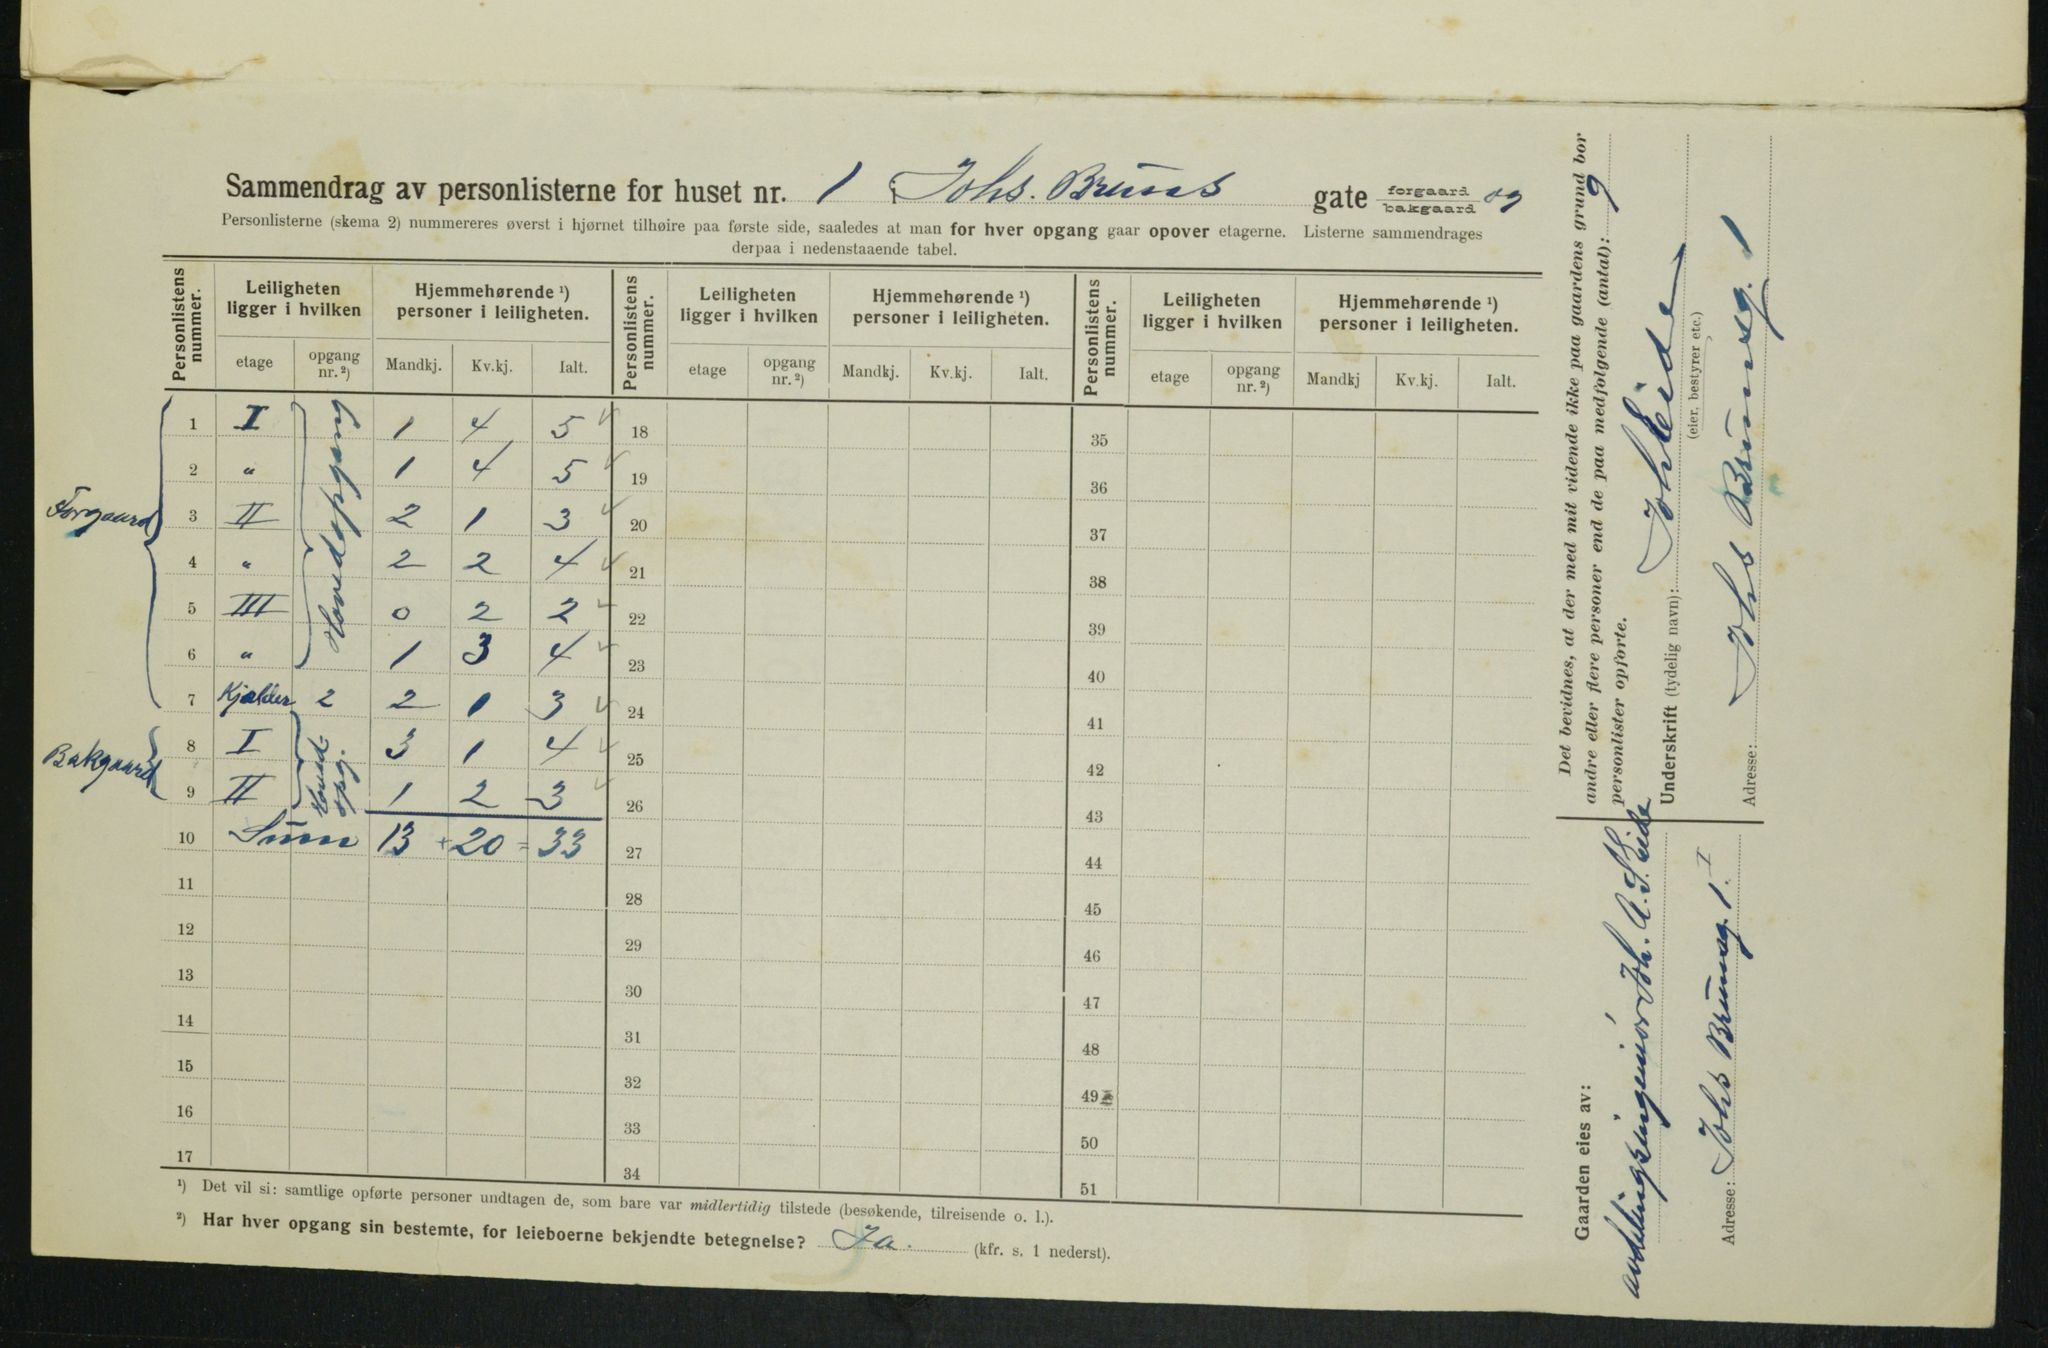 Sammendrag av personlisterne for huset nr. 1 i Johs. Bruns gate forgaard og bakgaard
Personlisterne (skema 2) nummereres øverst i hjørnet tilhøire paa første side, saaledes at man for hver opgang gaar opover etagerne. Listerne sammendrages
derpaa i nedenstaaende tabel.
Personlistens nummer. Leiligheten ligger i hvilken Hjemmehørende ¹) personer i leiligheten. Personlistens nummer. Leiligheten ligger i hvilken Hjemmehørende ¹) personer i leiligheten. Personlistens nummer. Leiligheten ligger i hvilken Hjemmehørende ¹) personer i leiligheten.
etage opgang nr. ²) Mandkj. Kv.kj. Ialt. etage opgang nr. ²) Mandkj. Kv.kj. Ialt. etage opgang nr. ²) Mandkj Kv.kj. Ialt.
Forgaard
Hovedopgang
1 I 1 4 5 18 35
2 " 1 4 5 19 36
3 II 2 1 3 20 37
4 " 2 2 4 21 38
5 III 0 2 2 22 39
6 " 1 3 4 23 40
7 Kjælder 2 2 1 3 24 41
Bakgaard
Hoved-
opg.
8 I 3 1 4 25 42
9 II 1 2 3 26 43
10 Sum 13 + 20 = 33 27 44
11 28 45
12 29 46
13 30 47
14 31 48
15 32 49
16 33 50
17 34 51
¹) Det vil si: samtlige opførte personer undtagen de, som bare var midlertidig tilstede (besøkende, tilreisende o. l.).
²) Har hver opgang sin bestemte, for leieboerne bekjendte betegnelse? Ja. (kfr. s. 1 nederst).
Det bevidnes, at der med mit vidende ikke paa gaardens grund bor
andre eller flere personer end de paa medfølgende (antal): 9
personlister opførte.
Underskrift (tydelig navn): Joh Eide
(eier, bestyrer etc.)
Adresse: Johs Brunsg. 1
Gaarden eies av:
avdelingsingeniør Joh. A. S. Eide
Adresse: Johs Brunsg. 1. I